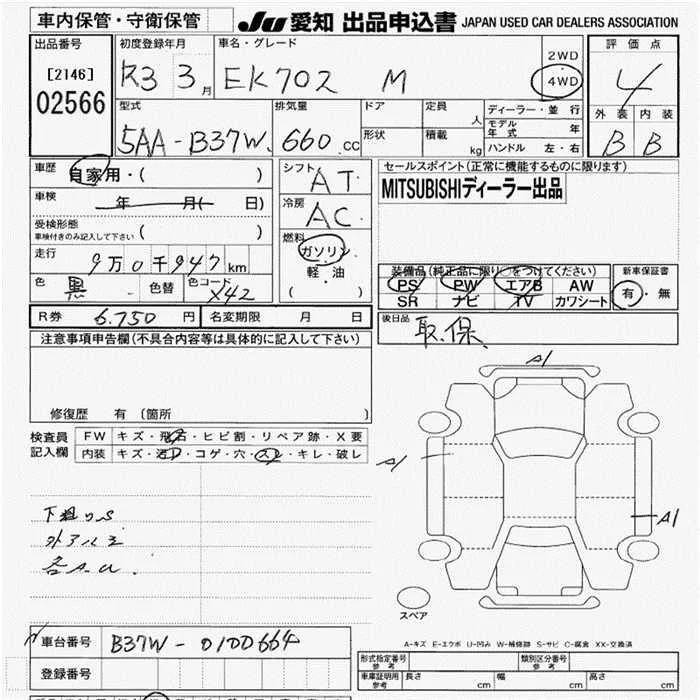 車内保管・守衛保管 JU 愛知 出品申込書 JAPAN USED CAR DEALERS ASSOCIATION
出品番号 初度登録年月 車名・グレード 2WD 評価点
[2146] R3 3月 EKクロス M 4WD 4
02566 型式 排気量 ドア 定員 人 ディーラー・並行 外装 内装
5AA-B37W 660 cc 形状 積載 kg モデル年式 年 B B
ハンドル 左・右
車歴 自家用・( ) シフト AT セールスポイント(正常に機能するものに限ります)
車検 年 月( 日) 冷房 AC MITSUBISHIディーラー出品
受検形態 ( )
車検付きのみ記入して下さい
走行 9万0千947km 燃料 ガソリン 軽・油 ( )
色 黒 色替 色コード X42
装備品(純正品に限り○をつけてください) 新車保証書
PS PW エアB AW 有・無
SR ナビ TV カワシート
R券 6.750円 名変期限 月 日 後日品
取.保
注意事項申告欄(不具合内容等は具体的に記入して下さい)
修復歴 有 (箇所 )
検査員 FW キズ・飛石・ヒビ割・リペア跡・X要
記入欄 内装 キズ・汚れ・コゲ・穴・スレ・キレ・破レ
A1
A1
A1
下廻りS
外アルミ
各A.U.
スペア
A-キズ E-エクボ U-凹み W-補修跡 S-サビ C-腐食 XX-交換済
車台番号 B37W-0100664
登録番号
形式指定番号 参考 類別区分番号 参考
車庫証明用 参考 長さ cm 幅 cm 高さ cm